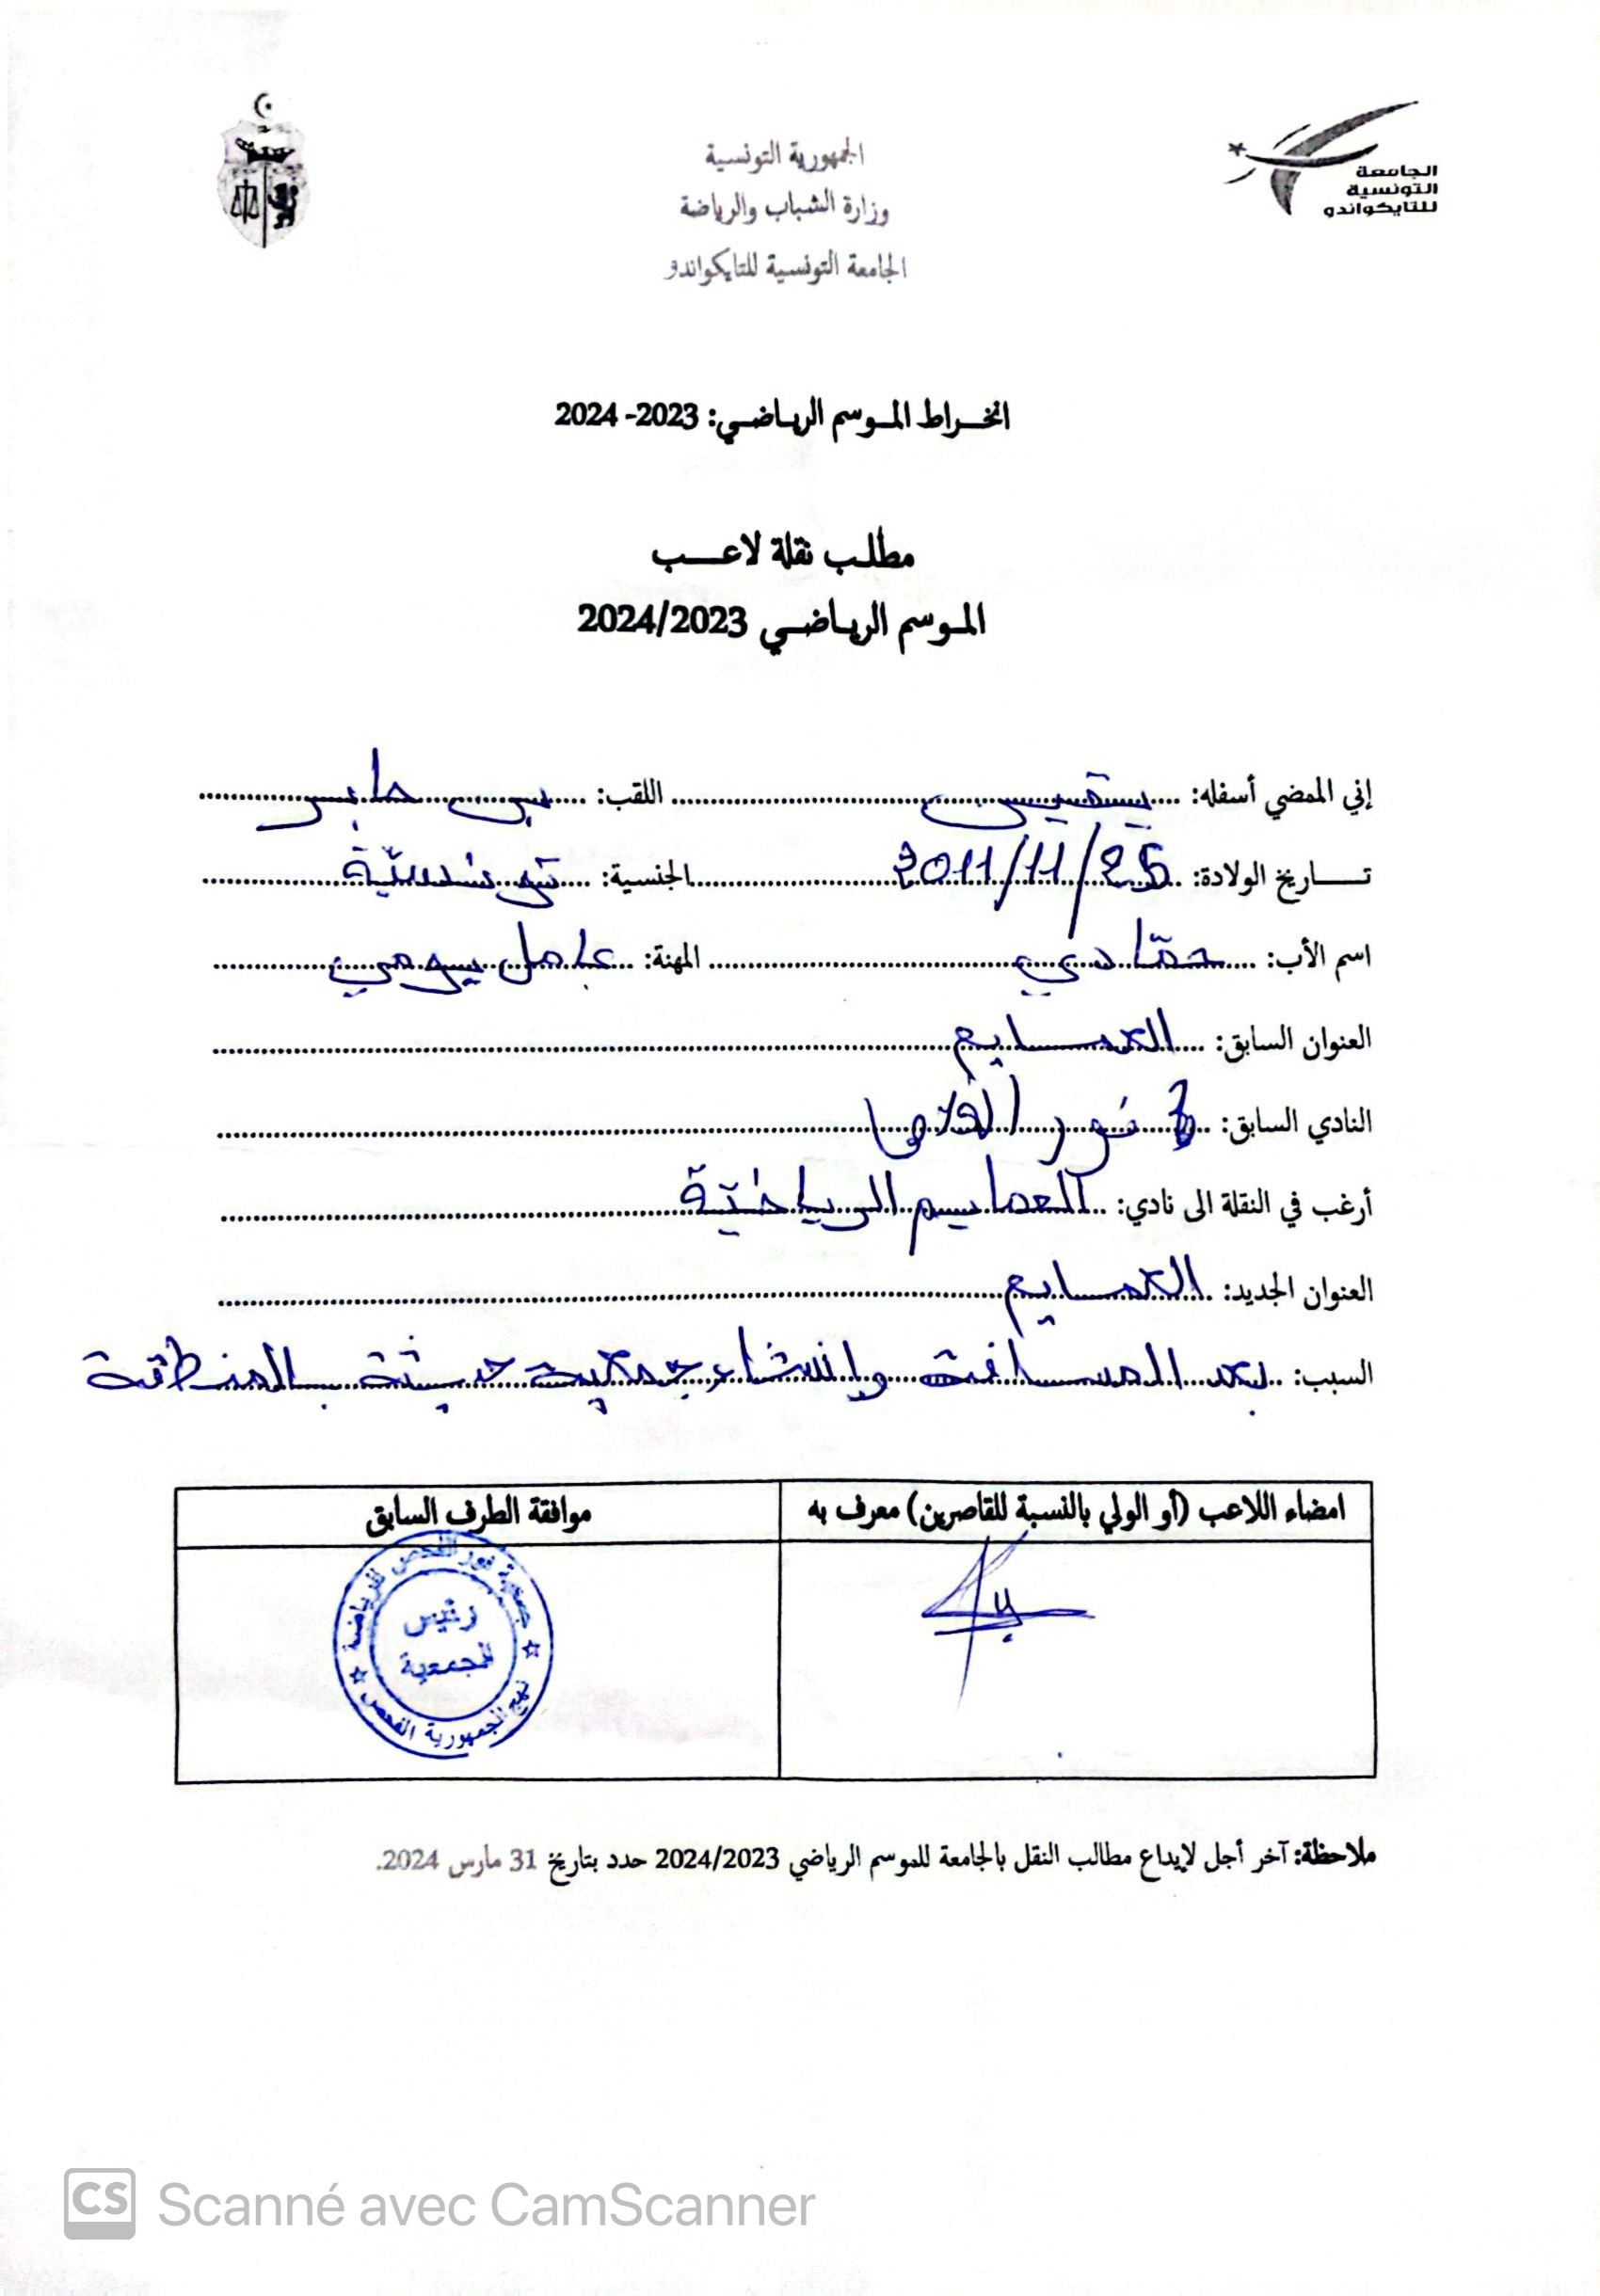 الجامعة
التونسية
للتايكواندو
الجمهورية التونسية
وزارة الشباب والرياضة
الجامعة التونسية للتايكواندو
انخراط الموسم الرياضي: 2023- 2024
مطلب نقلة لاعب
الموسم الرياضي 2024/2023
إني الممضي أسفله: يقين اللقب: بن جابر
تاريخ الولادة: 2011/11/25 الجنسية: تونسيّة
اسم الأب: حمّادي المهنة: عامل يومي
العنوان السابق:
النادي السابق: نور الفحص
أرغب في النقلة الى نادي: الرياضيّة
العنوان الجديد:
السبب: بعد المسافة وإنشاء جمعية حديثة بالمنطقة
امضاء اللاعب (أو الولي بالنسبة للقاصرين) معرف به
موافقة الطرف السابق
جمعية نور الفحص للرياضة
رئيس
الجمعية
نهج الجمهورية الفحص
ملاحظة: آخر أجل لإيداع مطالب النقل بالجامعة للموسم الرياضي 2024/2023 حدد بتاريخ 31 مارس 2024.
CS Scanné avec CamScanner